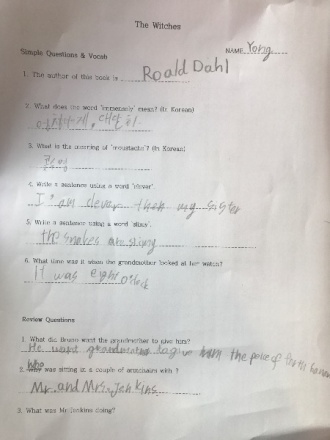 The Witches
Simple Questions & Vocab
NAME Yong
1. The author of this book is Roald Dahl
2. What does the word 'immensely' mean? (In Korean)
3. What is the meaning of 'moustache'? (In Korean)
콧수염
4. Write a sentence using a word 'clever'.
I am clever then my sister
5. Write a sentence using a word 'slimy'.
the snakes are slimy
6. What time was it when the grandmother looked at her watch?
It was eight o'clock
Review Questions
1. What did Bruno want the grandmother to give him?
He want grandmother to give him the piece of
2. Who was sitting in a couple of armchairs with ?
Mr. and Mrs. Jenkins
3. What was Mr. Jenkins doing?